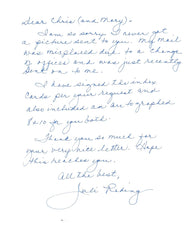 Dear Chris (and Mary) -
I am so sorry I never got
a picture sent to you. My mail
was misplaced due to a change
of offices and was just recently
sent on to me.
I have signed the index
cards per your request and
also included an autographed
8x10 for you both.
Thank you so much for
your very nice letter. Hope
this reaches you.
All the best,